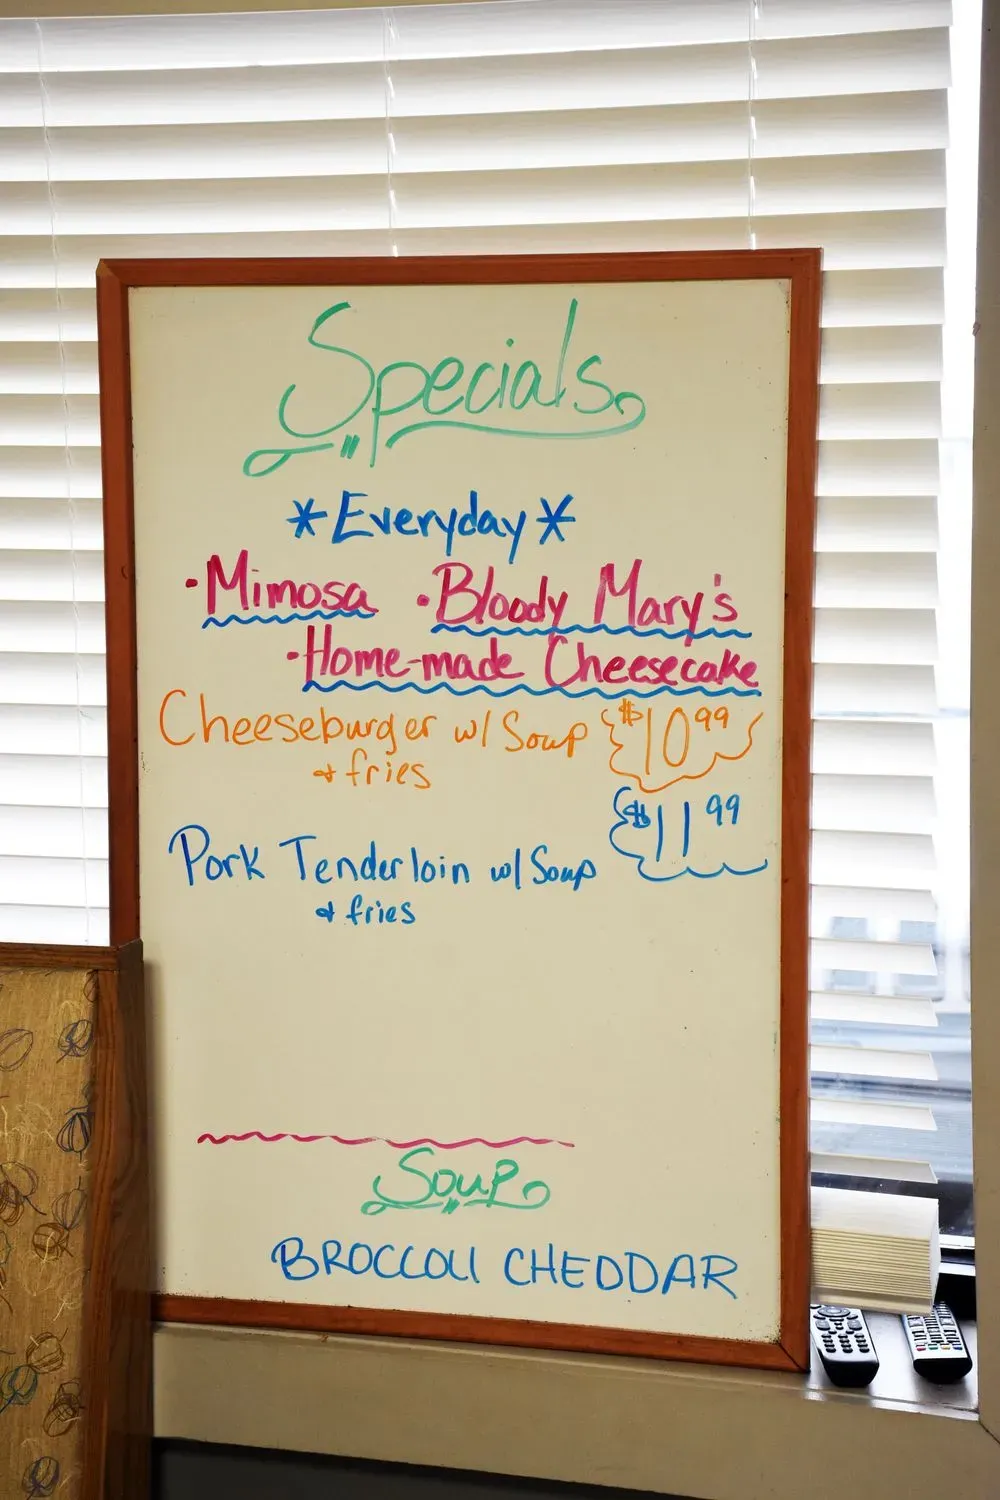 Specials
*Everyday*
·Mimosa ·Bloody Mary's
·Home-made Cheesecake
Cheeseburger w/ Soup $10.99
& fries
$11.99
Pork Tenderloin w/ Soup
& fries
Soup
BROCCOLI CHEDDAR